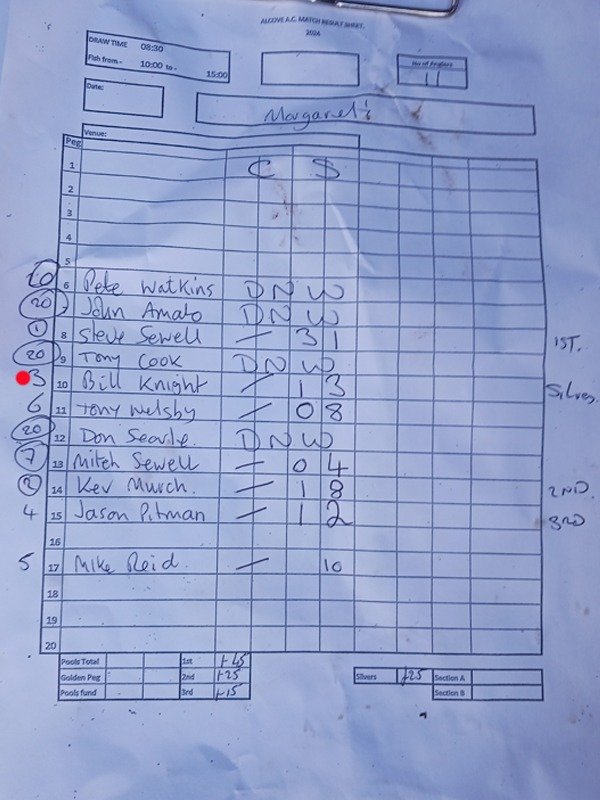 ALCOVE A.C. MATCH RESULT SHEET.
2024
DRAW TIME 08:30
Fish from - 10:00 to - 15:00
No of Anglers
11
Date:
Margaret's
Venue:
Peg
1 C S
2
3
4
5
6 Pete Watkins D N W
20 7 John Amato D N W
1 8 Steve Sewell — 3 1 1ST.
20 9 Tony Cook D N W
3 10 Bill Knight — 1 3 Silves
6 11 Tony Welsby — 0 8
20 12 Don Searle. D N W
7 13 Mitch Sewell — 0 4
2 14 Kev Murch. — 1 8 2ND.
4 15 Jason Pitman — 1 2 3RD
16
5 17 Mike Reid. — 10
18
19
20
Pools Total 1st £45 Silvers £25 Section A
Golden Peg 2nd £25 Section B
Pools fund 3rd £15